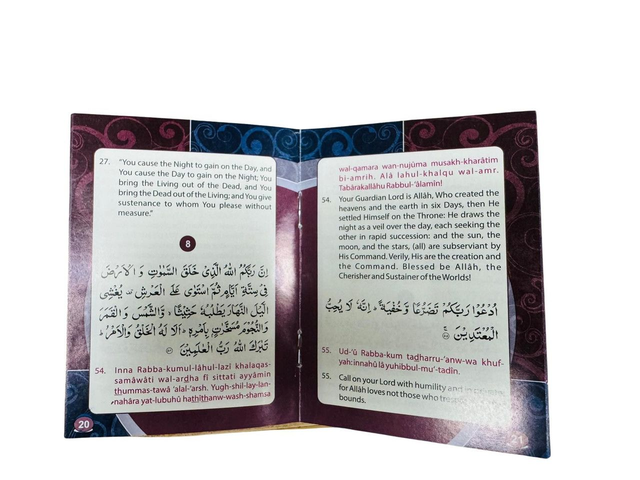 27. "You cause the Night to gain on the Day, and
You cause the Day to gain on the Night; You
bring the Living out of the Dead, and You
bring the Dead out of the Living; and You give
sustenance to whom You please without
measure."
8
اِنَّ رَبَّكُمُ اللهُ الَّذِيْ خَلَقَ السَّمٰوٰتِ وَالْاَرْضَ
فِيْ سِتَّةِ اَيَّامٍ ثُمَّ اسْتَوٰى عَلَى الْعَرْشِ يُغْشِى
الَّيْلَ النَّهَارَ يَطْلُبُهٗ حَثِيْثًا وَّالشَّمْسَ وَالْقَمَرَ
وَالنُّجُوْمَ مُسَخَّرٰتٍ بِاَمْرِهٖ اَلَا لَهُ الْخَلْقُ وَالْاَمْرُ
تَبٰرَكَ اللهُ رَبُّ الْعٰلَمِيْنَ
54. Inna Rabba-kumul-lâhul-lazî khalaqas-
samâwâti wal-ardha fî sittati ayyâmin
thummas-tawâ 'alal-'arsh. Yugh-shil-lay-lan-
nahâra yat-lubuhû hathîthanw-wash-shamsa
20
wal-qamara wan-nujûma musakh-kharâtim
bi-amrih. Alâ lahul-khalqu wal-amr.
Tabârakallâhu Rabbul-'âlamîn!
54. Your Guardian Lord is Allâh, Who created the
heavens and the earth in six Days, then He
settled Himself on the Throne: He draws the
night as a veil over the day, each seeking the
other in rapid succession: and the sun, the
moon, and the stars, (all) are subserviant by
His Command. Verily, His are the creation and
the Command. Blessed be Allâh, the
Cherisher and Sustainer of the Worlds!
اُدْعُوْا رَبَّكُمْ تَضَرُّعًا وَّخُفْيَةً اِنَّهٗ لَا يُحِبُّ
الْمُعْتَدِيْنَ
55. Ud-'û Rabba-kum tadharru-'anw-wa khuf-
yah: innahû lâ yuhibbul-mu'-tadîn.
55. Call on your Lord with humility and in
for Allâh loves not those who
bounds.